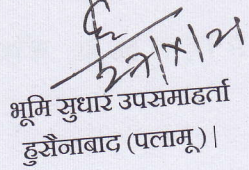 भूमि सुधार उपसमाहर्ता
हुसैनाबाद (पलामू) |